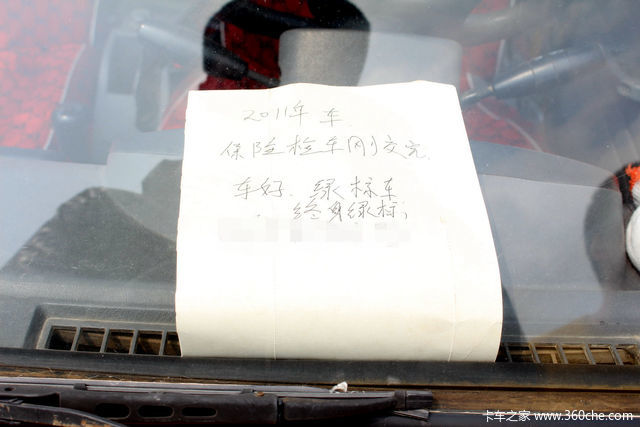 2011年 车
保险检车刚交完.
车好. 绿标车
终身绿标;
卡车之家 www.360che.com